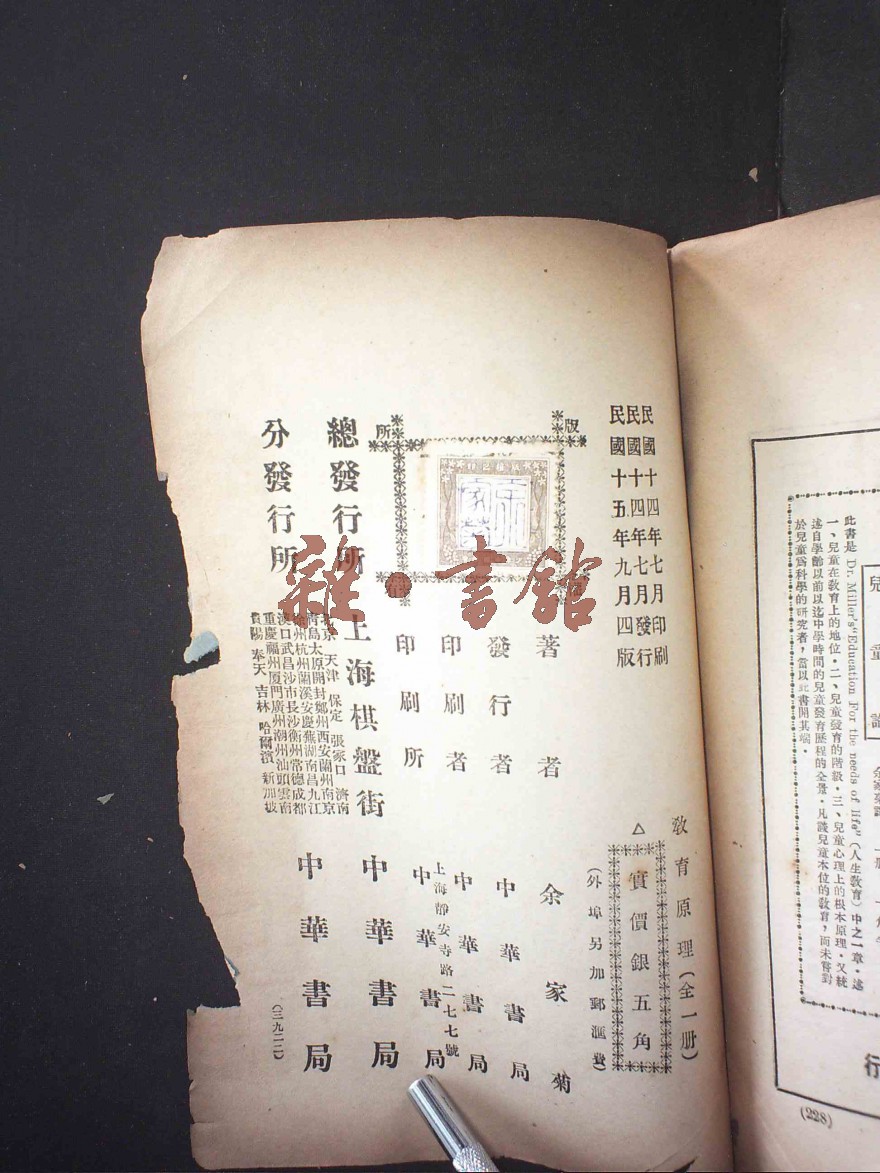 民國十四年七月印刷
民國十四年七月發行
民國十五年九月四版
教育原理(全一册)
△
實價銀五角
(外埠另加郵滙費)
版
所
著者 余家菊
發行者 中華書局
印刷者 中華書局
印刷所 上海靜安寺路二七七號 中華書局
總發行所 上海棋盤街 中華書局
分發行所
北京 天津 保定 張家口 濟南
青島太原開封鄭州西安蘭州南京
徐州杭州蘭溪安慶蕪湖南昌九江
漢口武昌沙市長沙衡州常德成都
重慶福州厦門廣州潮州汕頭雲南
貴陽 奉天 吉林 哈爾濱 新加坡
中華書局
(三九二二)
雜·書館
兒童
此書是 Dr. Miller's "Education For the needs of life"(人生教育)中之一章·述
一、兒童在教育上的地位·二、兒童發育的階級·三、兒童心理上的根本原理·又統
述自學齡以前以迄中學時間的兒童發育歷程的全景·凡談兒童本位的教育,而未嘗對
於兒童爲科學的研究者,當以此書開其端·
行
(228)